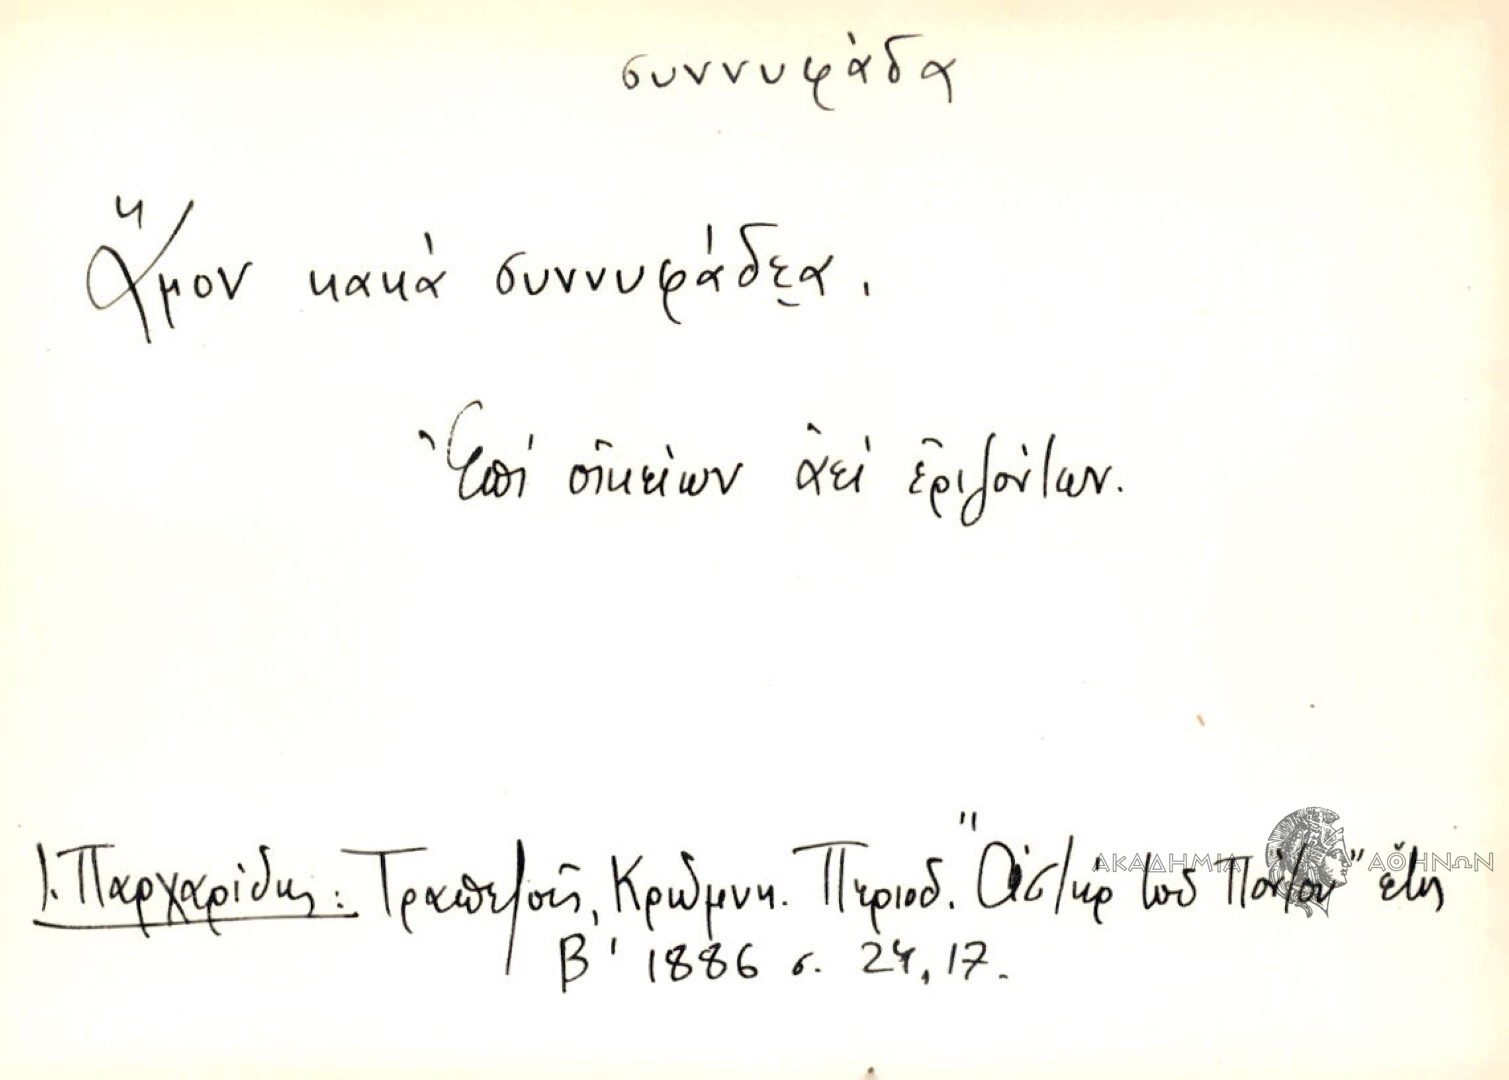 συννυφάδα
Ἄμον κακά συννυφάδε̮α.
Ἐπί οἰκείων ἀεί ἐριζόντων.
Ι. Παρχαρίδης: Τραπεζοῦς, Κρώμνη. Περιοδ. "Ἀστήρ τοῦ Πόντου" ἔτος
Β' 1886 σ. 24, 17.
ΑΚΑΔΗΜΙΑ ΑΘΗΝΩΝ